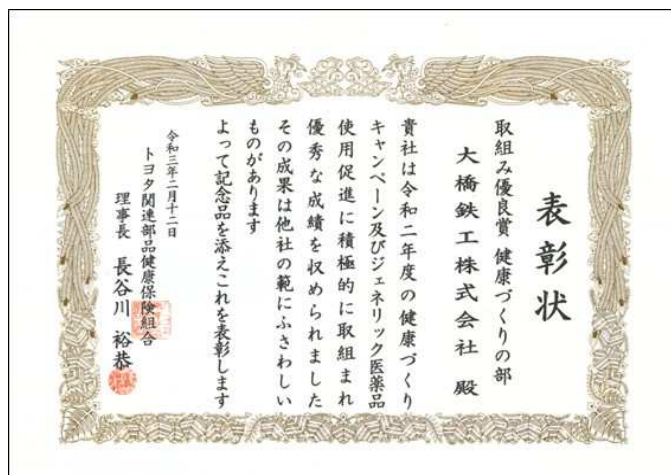 表彰状
取組み優良賞 健康づくりの部
大橋鉄工株式会社 殿
貴社は令和二年度の健康づくり
キャンペーン及びジェネリック医薬品
使用促進に積極的に取組まれ
優秀な成績を収められました
その成果は他社の範にふさわしい
ものがあります
よって記念品を添えこれを表彰します
令和三年二月十二日
トヨタ関連部品健康保険組合
理事長 長谷川 裕恭